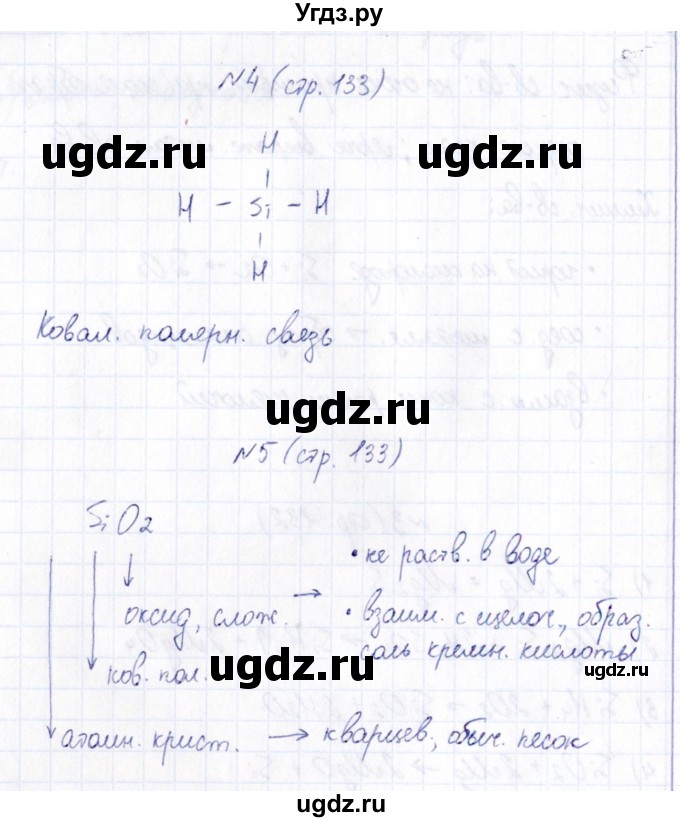 Угдз.ру
N4 (стр. 133)
ugdz.ru ugdz.ru
H
H - Si - H
H
Ковал. полярн. связь
ugdz.ru
N5 (стр. 133)
SiO2
• не раств. в воде
оксид, слож. → • взаим. с щелоч., образ.
соль кремн. кислоты
ugdz.ru
ugdz.ru
ков. пол.
атомн. крист. → кварцев., обыч. песок
ugdz.ru